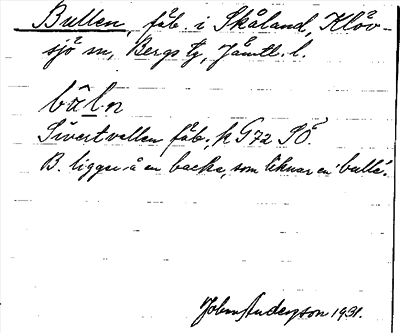 Bullen, fäb. i Skåland, Klöv-
sjö sn, Bergs tg, Jämtl. l.
bu̇l·n
Sivertvallen fäb., k G72 SÖ.
B. ligger å en backe, som liknar en 'bulle'.
John Anderzson 1931.